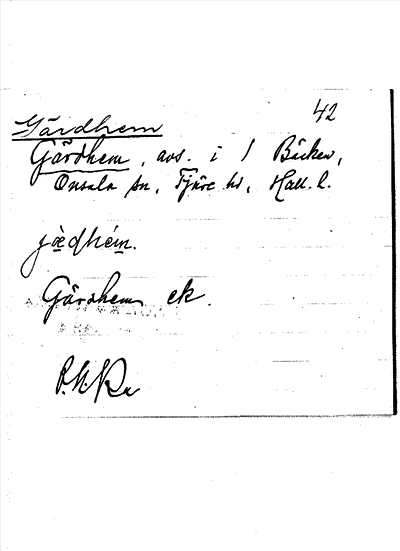 42
Gärdhem
Gärdhem, avs. i 1 Bäcken,
Onsala sn, Fjäre hd, Hall. l.
jæ̀dhém.
Gärdhem ek.